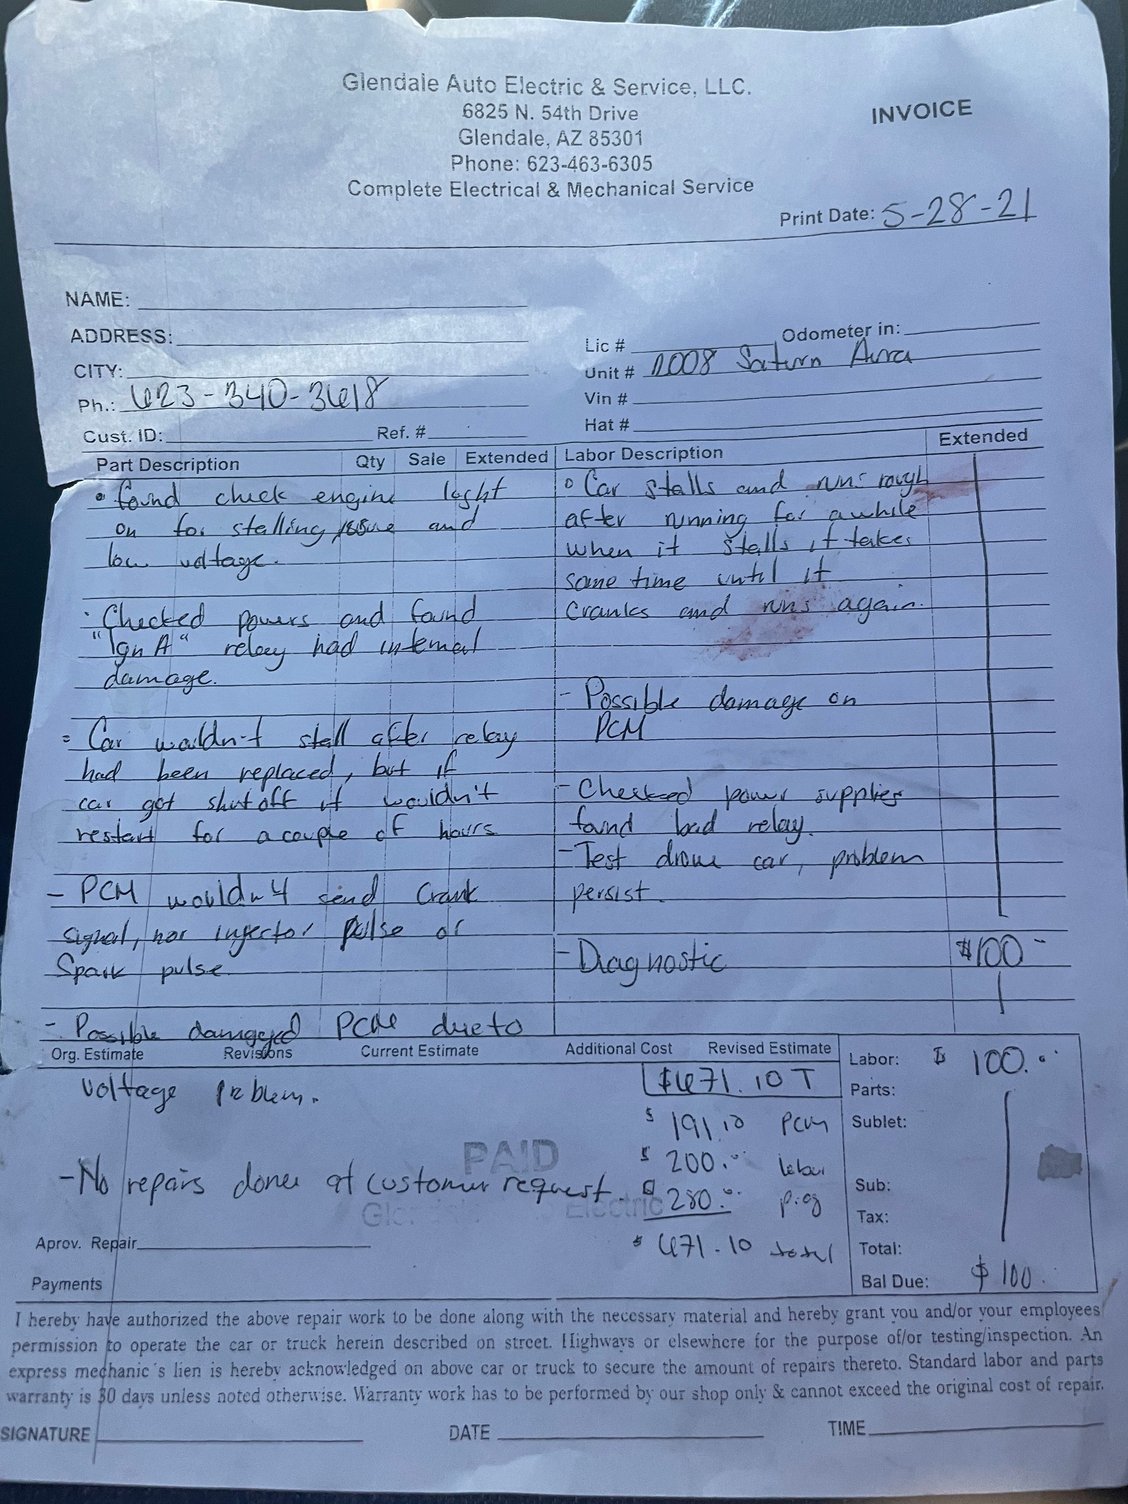 Glendale Auto Electric & Service, LLC.
6825 N. 54th Drive
Glendale, AZ 85301
Phone: 623-463-6305
Complete Electrical & Mechanical Service
INVOICE
Print Date: 5-28-21
NAME:
ADDRESS:
CITY:
Ph.: 623-340-3618
Cust. ID: Ref. #
Lic # Odometer in:
Unit # 2008 Saturn Aura
Vin #
Hat #
Part Description Qty Sale Extended
• found check engine light
on for stalling issue and
low voltage.
· Checked powers and found
"Ign A" relay had internal
damage.
Car wouldn't stall after relay
had been replaced, but if
car got shut off it wouldn't
restart for a couple of hours
- PCM wouldn't send Crank
signal, nor injector pulse or
Spark pulse
- Possible damaged PCM due to
voltage problem.
- No repairs done at customer request.
Labor Description Extended
Car stalls and runs rough
after running for awhile
when it stalls it takes
some time until it
cranks and runs again.
- Possible damage on
PCM
- Checked power supplies
found bad relay.
- Test drove car, problem
persist.
- Diagnostic $100-
Org. Estimate Revisions Current Estimate Additional Cost Revised Estimate
$671.10 T
$ 191.10 PCM
$ 200.00 labor
$ 280.00 prog
$ 671.10 total
PAID
Electric
Aprov. Repair
Payments
Labor: $ 100.00
Parts:
Sublet:
Sub:
Tax:
Total:
Bal Due: $ 100.
I hereby have authorized the above repair work to be done along with the necessary material and hereby grant you and/or your employees
permission to operate the car or truck herein described on street. Highways or elsewhere for the purpose of/or testing/inspection. An
express mechanic's lien is hereby acknowledged on above car or truck to secure the amount of repairs thereto. Standard labor and parts
warranty is 30 days unless noted otherwise. Warranty work has to be performed by our shop only & cannot exceed the original cost of repair.
SIGNATURE DATE TIME